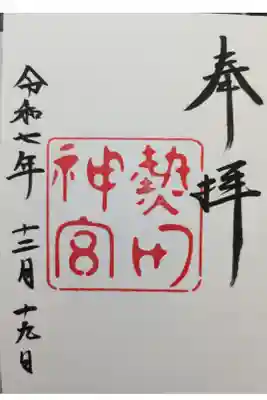 奉拝
熱田
神宮
令和七年 十二月 十九日